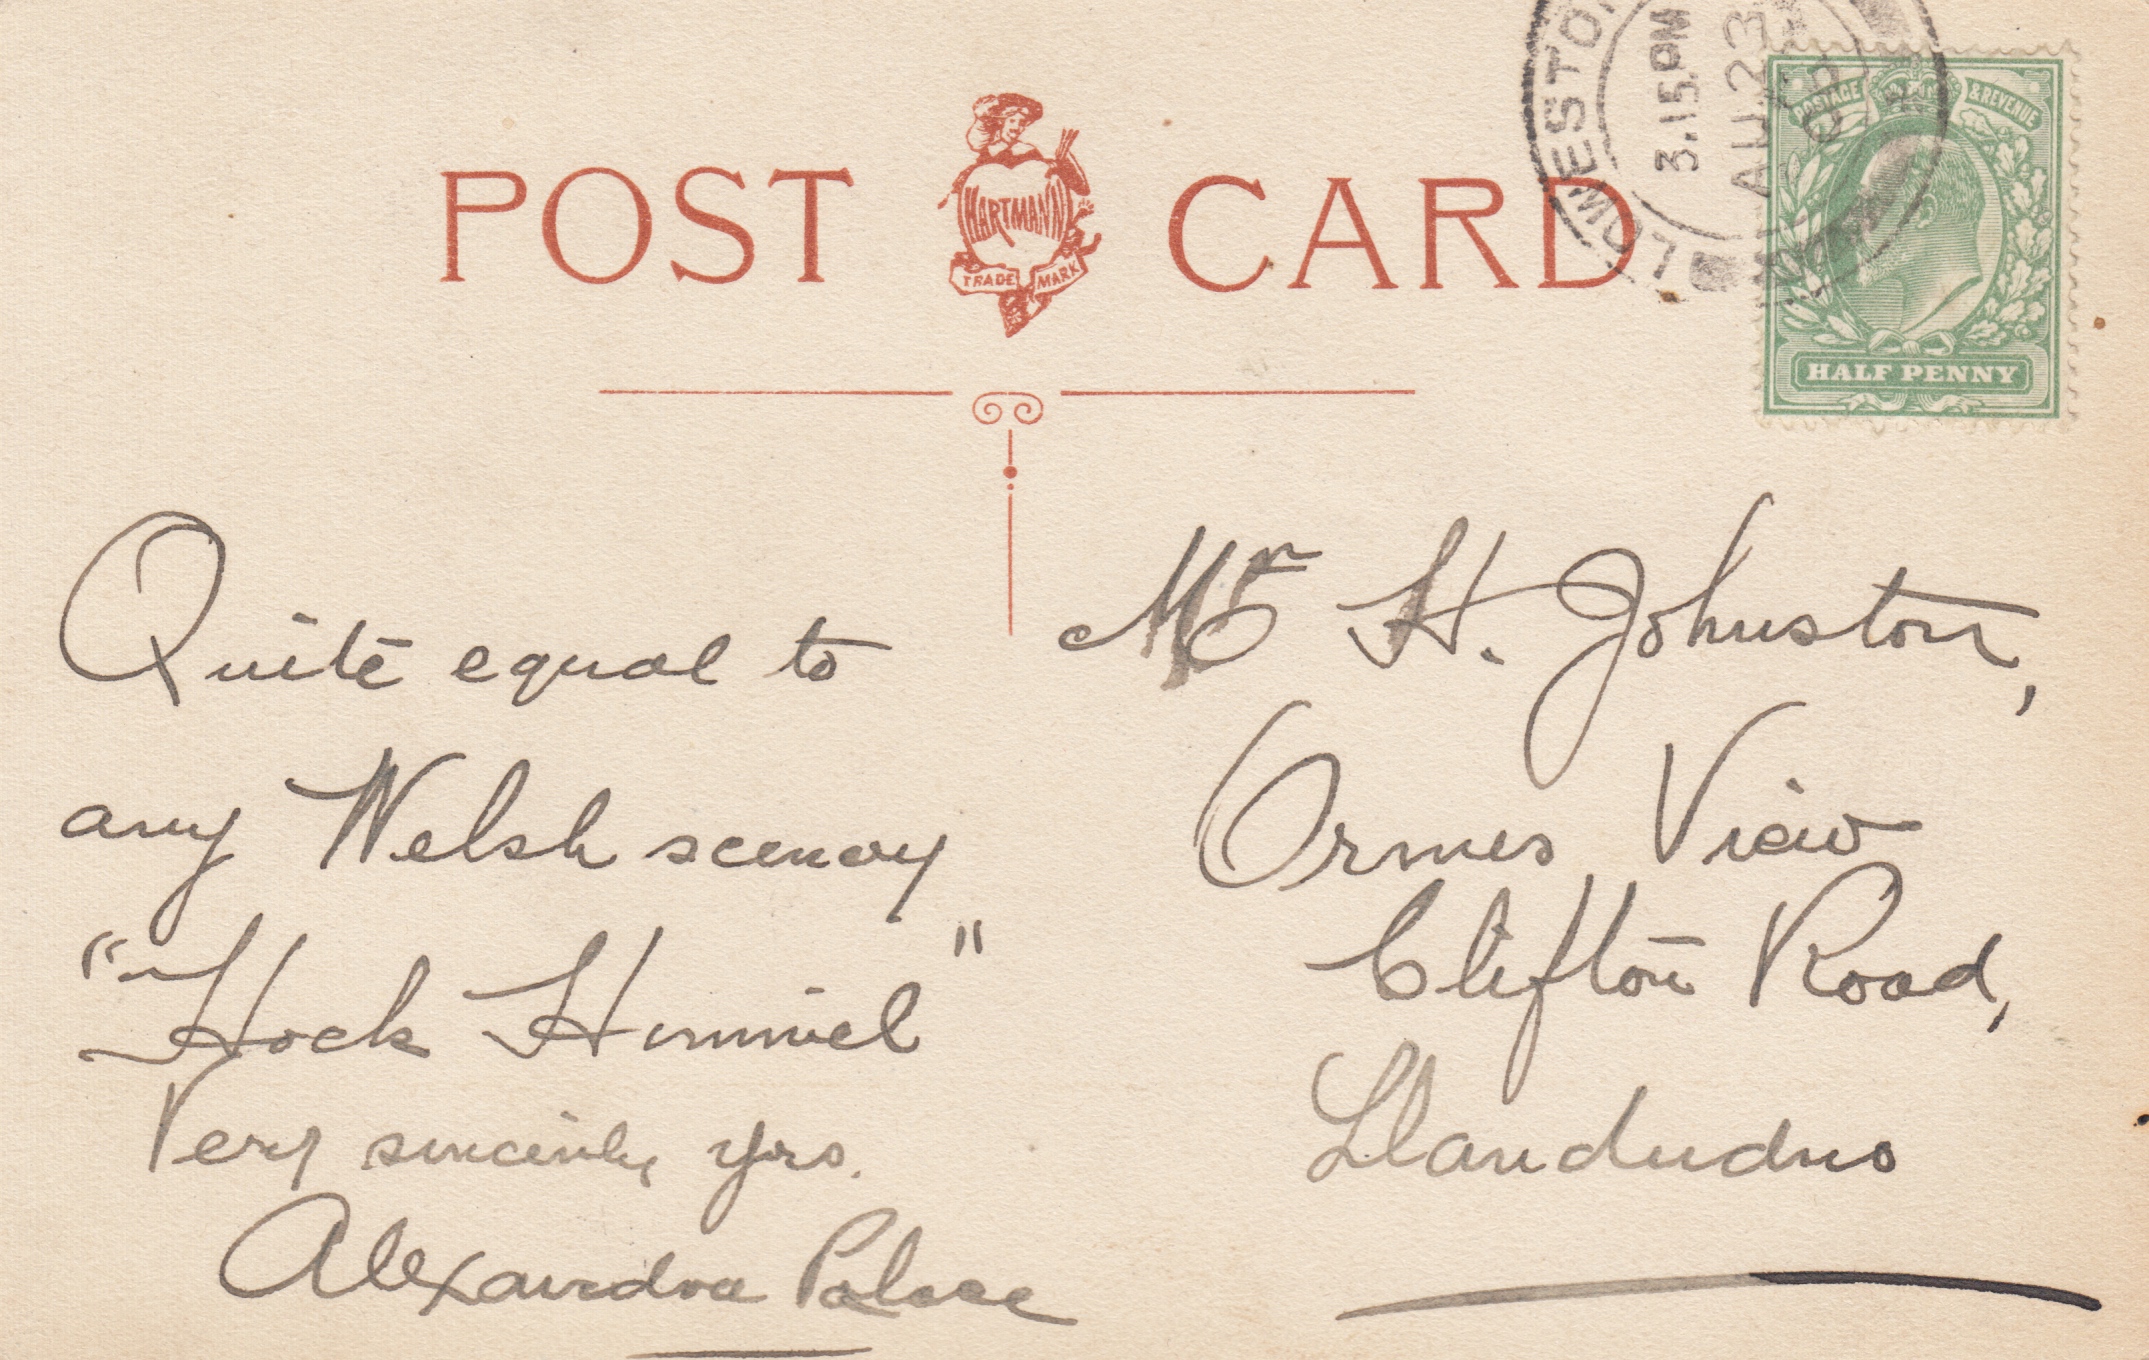 POST CARD
HARTMANN
TRADE MARK
LOWESTO
3.15PM
AU 23
POSTAGE & REVENUE
HALF PENNY
Quite equal to
any Welsh scenery
"Hock Himmel"
Very sincerely yrs.
Alexandra Palace
Mr H. Johnston,
Ormes View
Clifton Road,
Llandudno